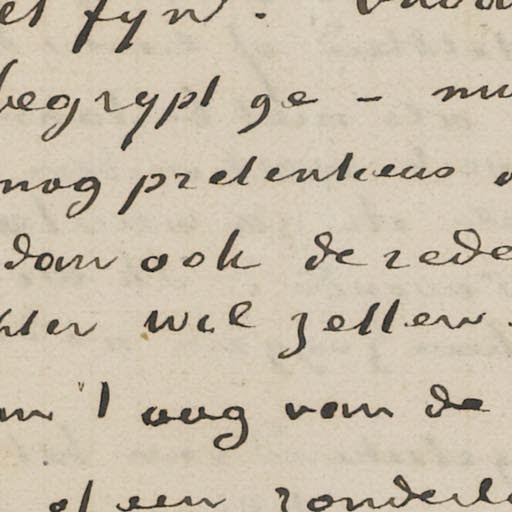 et fyn.
begrypt ge – 
nog pretentieus
dan ook de rede
wil zetten.
't oog van de
of een zonderl